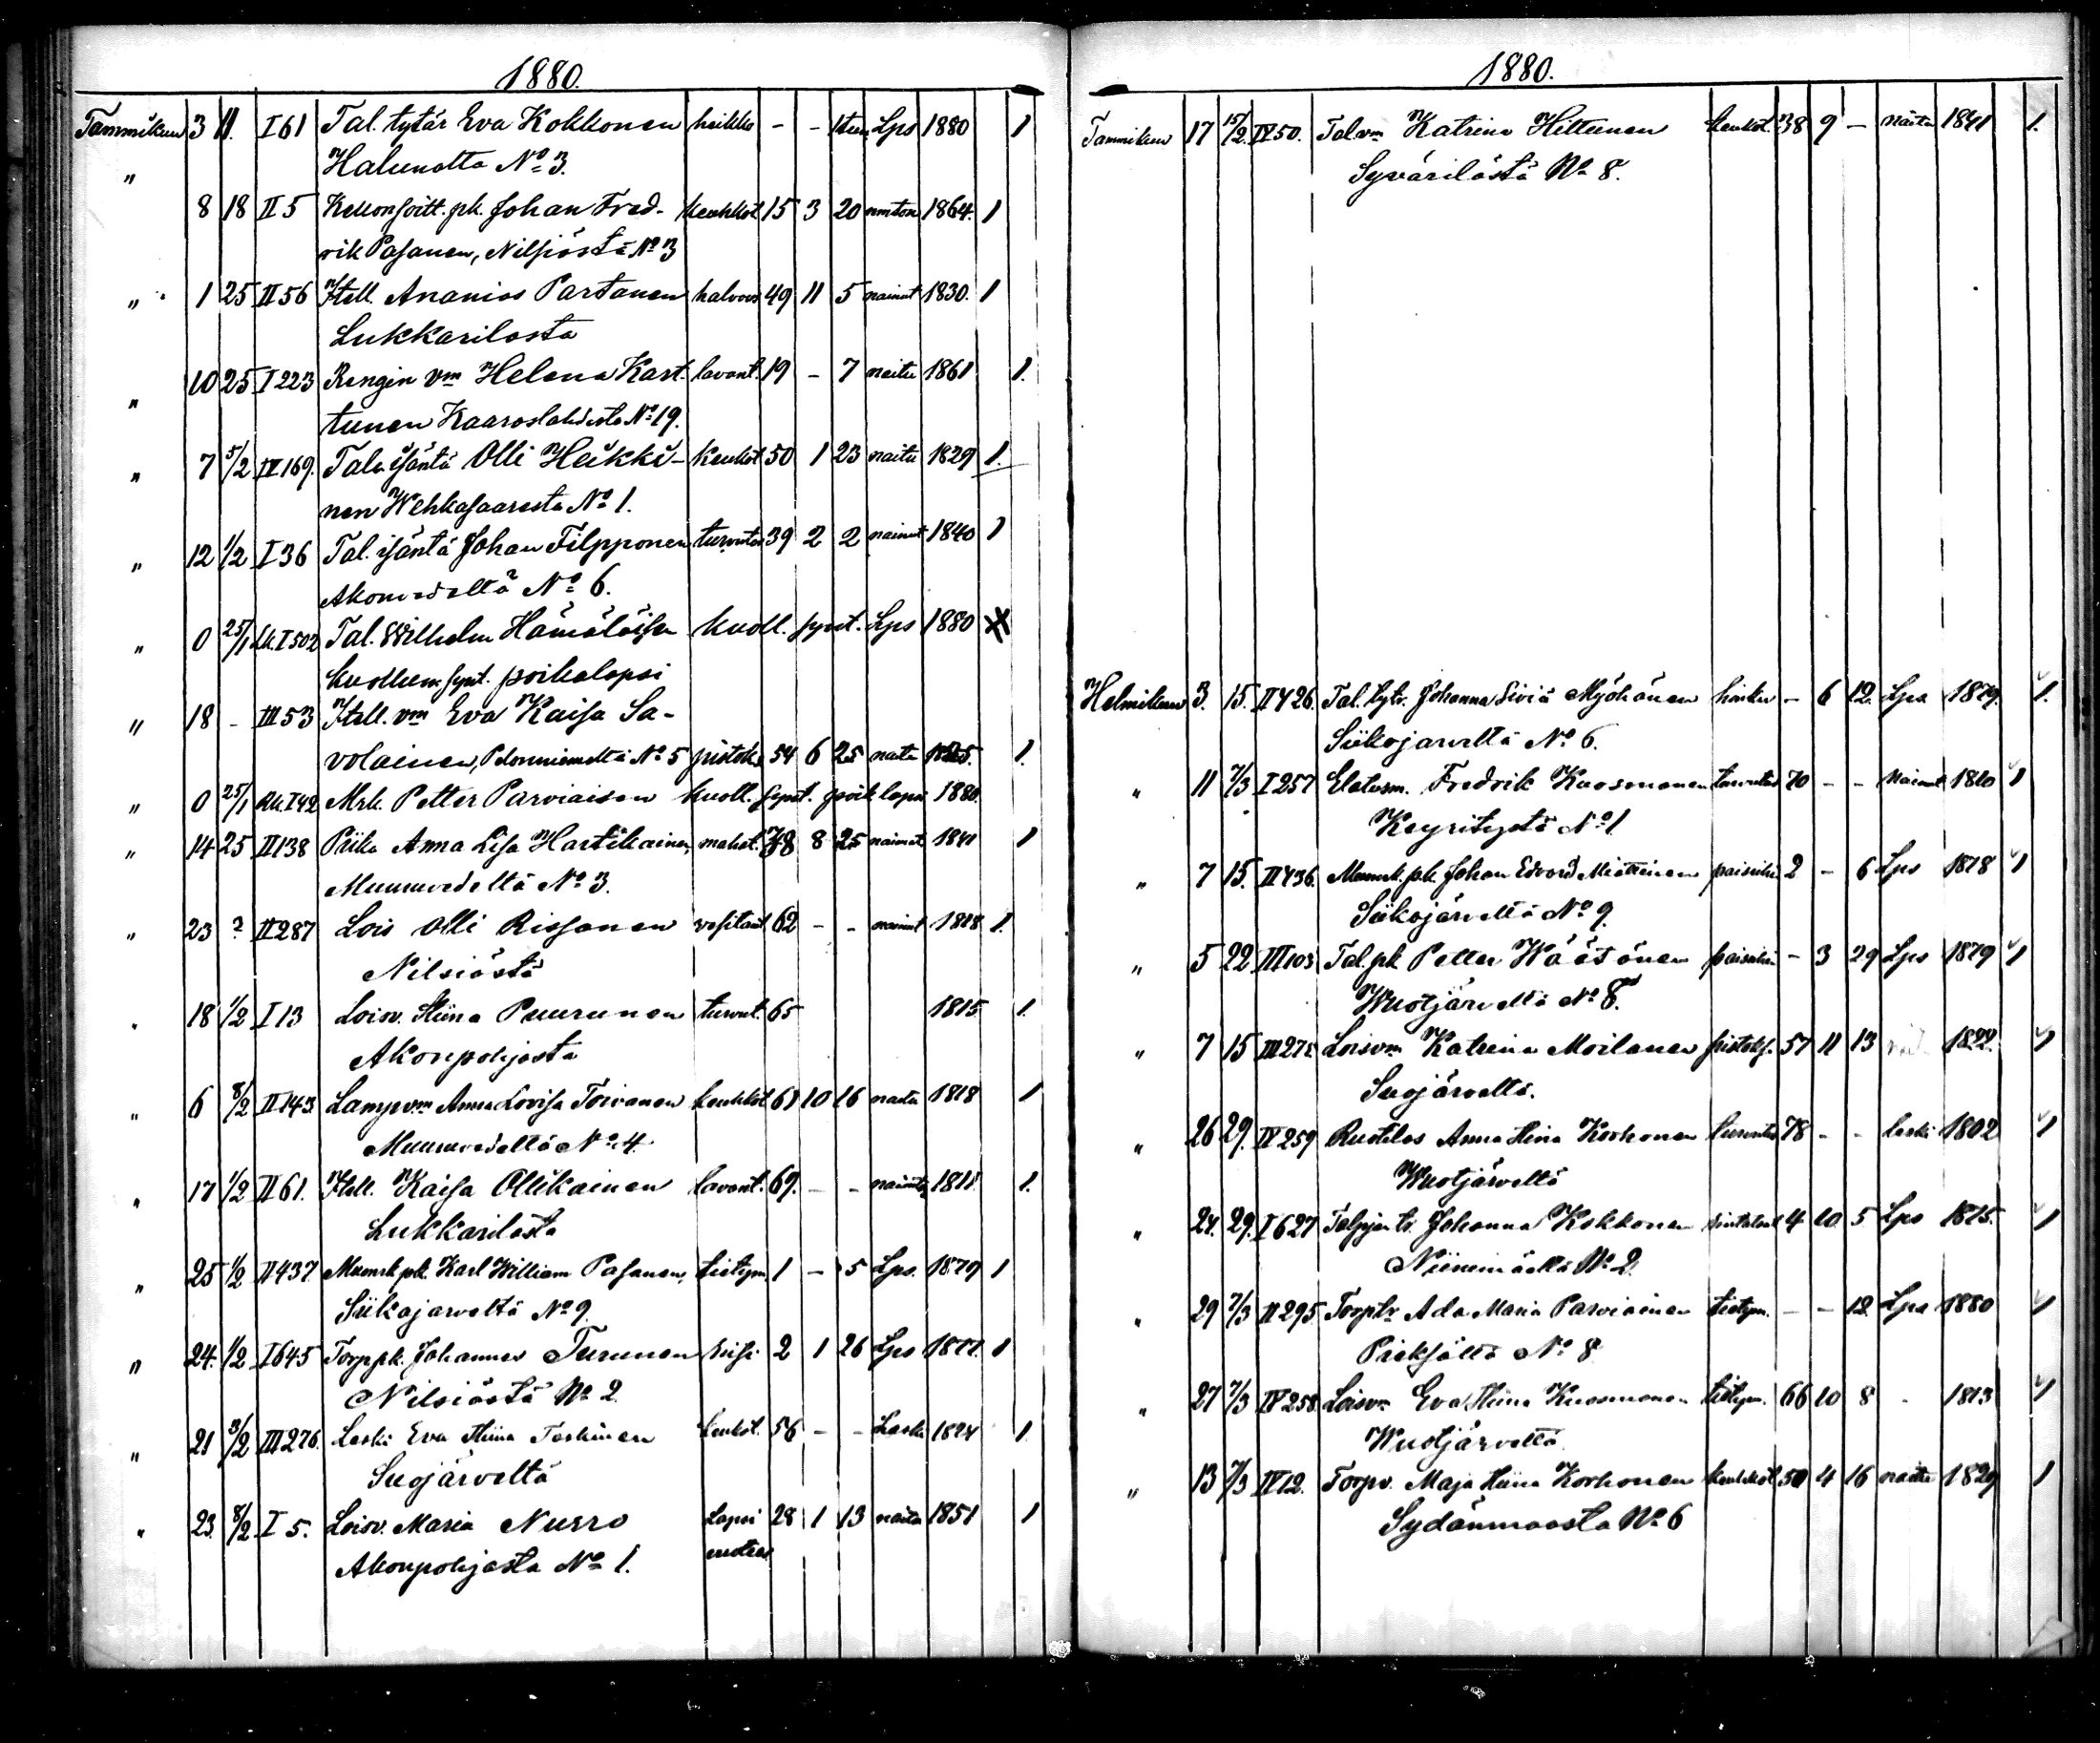 1880.
Tammikuu 3 11. I 61 Tal. tytär Eva Kokkonen heikko - - 1 tun Lps 1880 1
" Halunatta No 3.
8 18 II 5 Kellonsoitt. pk. Johan Fred- keuhkot 15 3 20 nmton 1864. 1
rik Pasanen, Nilsiöstä No 3
" 1 25 II 56 Itell. Ananias Partanen halvaus 49 11 5 nainut 1830. 1
Lukkarilasta
" 10 25 I 223 Rengin vm Helena Kart- lavant. 19 - 7 naitu 1861 1.
tunen Kaaroslahdesta No 19.
" 7 5/2 IV 169. Talu isäntä Olli Heikki- Keuhkot 50 1 23 naitu 1829 1.
nen Wehkasaaresta No 1.
" 12 1/2 I 36 Tal. isäntä Johan Filpponen turvutus 39 2 2 nainut 1840 1
Akonvedeltä No 6.
" 0 25/1 Lk. I 502 Tal. Wilhelm Hämäläisen kuoll. synt. Lps 1880
kuolluna synt. poikalapsi
" 18 - III 53 Itell. vm Eva Kaisa Sa-
volainen, Pelonniemeltä No 5 pistoks 54 6 25 naitu 1825. 1.
" 0 25/1 Rk. I 42 Mrk. Petter Parviaisen kuoll. synt. poik lapsi 1880.
" 14 25 II 138 Piika Anna Lisa Hartikainen, mahat. 38 8 25 naimat 1841 1
Muuruvedeltä No 3.
" 23 ? II 287 Lois Olli Rissanen vesitaut 62 - - nainut 1818 1.
Nilsiästä
" 18 1/2 I 13 Loisv. Stina Puurunen turvut. 65 1815 1.
Akonpohjasta
" 6 8/2 II 143 Lampvm Anna Lovisa Toivanen keuhkot 61 10 16 naitu 1818 1
Muuruvedeltä No 4.
" 17 1/2 II 61. Itell. Kaisa Ollikainen lavant. 69. - - 1811 1.
Lukkarilasta
" 25 1/2 II 437 Muonrk pk. Karl William Pasanen, tietym. 1 - 5 Lps. 1879 1
Siikajarveltä No 9.
" 24. 1/2 I 645 Torp pk. Johannes Turunen 2 1 26 Lps 1877. 1
Nilsiästä No 2.
" 21 3/2 III 276. Leski Eva Stiina Taskinen keuhkot. 56 - - Leski 1824 1
Suojärveltä
" 23. 8/2 I 5. Loisv. Maria Nurro Lapsi 28 1 13 naitu 1851 1
Akonpohjasta No 1.
1880.
Tammikuu 17 15/2. IV 50. Tal.vm Katrina Hiltunen keuhkot. 38 9 - naitu 1841 1.
Syvärilästä No 8.
Helmikuu 3. 15. II 426. Tal. tytr. Johanna Liviä Myöhänen hinku - 6 12. Lps 1879. 1.
Siikajarveltä No 6.
" 11 7/3 I 257 Elatusm. Fredrik Kuosmanen turvutus 70 - - Nainut 1810 1
Keyritystä No 1
" 7 15. II 436. Muonrk. pk. Johan Edvard Miettinen paisuku 2 - 6 Lps 1878 1
Siikajärveltä No 9.
" 5 22 III 103 Tal. pk Petter Wäätänen paisuku - 3 29 Lps 1879 1
Wuotjärveltä No 8.
" 7 15 III 272 Loisvm Katrina Moilanen pistoks. 57 11 13 1822. 1
Suojärveltä.
" 26 29. IV 259 Ruotilas Anna Stina Korhonen turvutus 78 - - leski 1802 1
Wuotjärveltä
" 24. 29. I 627 Johanna Kokkonen 4 10 5 Lps 1875. 1
Niinimäeltä No 2.
" 29 7/3 II 295. Torptr Ada Maria Parviainen tietym. - - 12 Lps 1880 1
Pieksältä No 8
" 27 7/3 IV 258. Loisvm Eva Stiina Kuosmanen tietym. 66 10 8 - 1813 1
Wuotjärveltä
" 13 7/3 IV 12. Torpv. Maja Stiina Korhonen keuhkot 50 4 16 naitu 1829 1
Sydänmaasta No 6